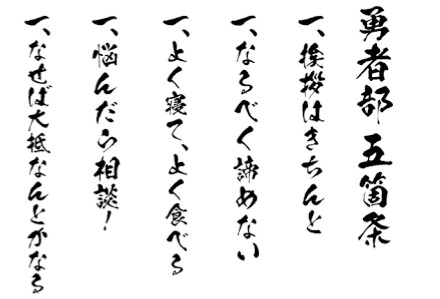 勇者部 五箇条
一、挨拶はきちんと
一、なるべく諦めない
一、よく寝て、よく食べる
一、悩んだら相談！
一、なせば大抵なんとかなる